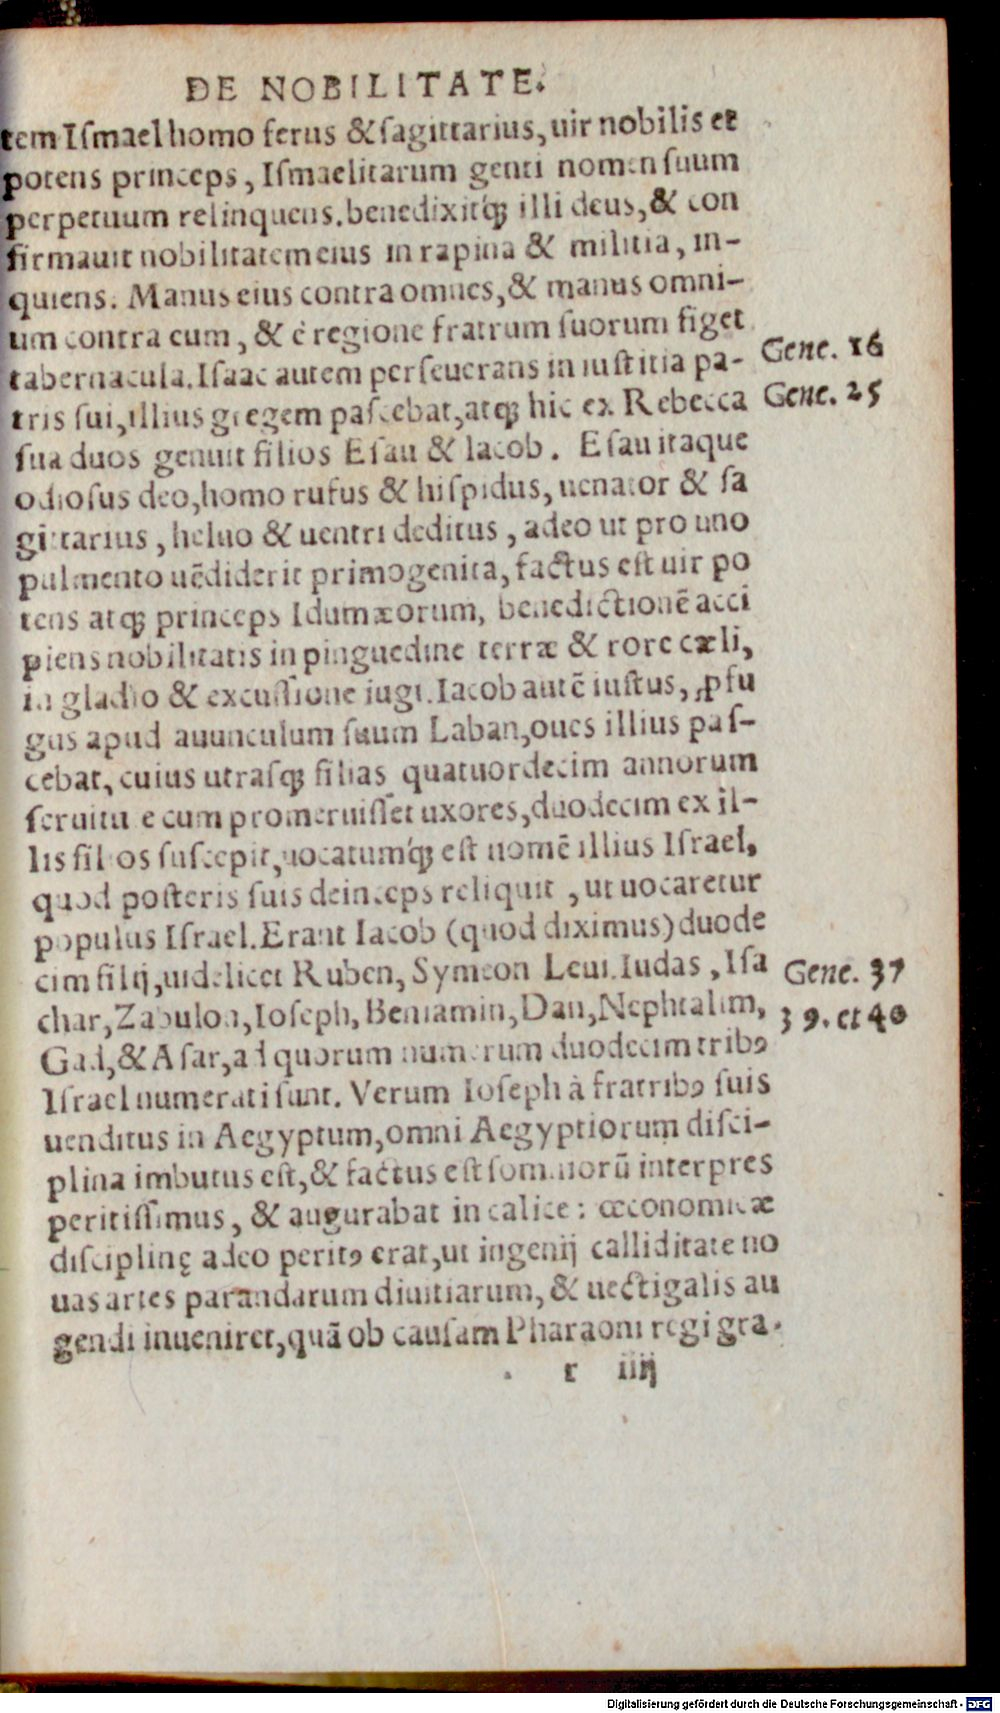 DE NOBILITATE.
tem Iſmael homo ferus & ſagittarius, uir nobilis et
potens princeps, Iſmaelitarum genti nomen ſuum
perpetuum relinquens. benedixitq́ꝫ illi deus, & con
firmauit nobilitatem eius in rapina & militia, in-
quiens. Manus eius contra omnes, & manus omni-
um contra eum, & è regione fratrum ſuorum figet
tabernacula. Iſaac autem perſeuerans in iuſtitia pa-
Gene. 16
tris ſui, illius gregem paſcebat, atqꝫ hic ex Rebecca
Gene. 25
ſua duos genuit filios Eſau & Iacob. Eſau itaque
odioſus deo, homo rufus & hiſpidus, uenator & ſa
gittarius, heluo & uentri deditus, adeo ut pro uno
pulmento uēdiderit primogenita, factus eſt uir po
tens atqꝫ princeps Idumæorum, benedictionē acci
piens nobilitatis in pinguedine terræ & rore cæli,
in gladio & excuſſione iugi. Iacob autē iuſtus, ꝓfu
gus apud auunculum ſuum Laban, oues illius paſ-
cebat, cuius utraſqꝫ filias quatuordecim annorum
ſeruitute cum promeruiſſet uxores, duodecim ex il-
lis filios ſuſcepit, uocatumq́ꝫ eſt nomē illius Iſrael,
quod poſteris ſuis deinceps reliquit, ut uocaretur
populus Iſrael. Erant Iacob (quod diximus) duode
cim filij, uidelicet Ruben, Symeon Leui. Iudas, Iſa
Gene. 37
char, Zabulon, Ioſeph, Beniamin, Dan, Nephtalim,
39. et 40
Gad, & Aſar, ad quorum numerum duodecim tribꝰ
Iſrael numerati ſunt. Verum Ioſeph à fratribꝰ ſuis
uenditus in Aegyptum, omni Aegyptiorum diſci-
plina imbutus eſt, & factus eſt ſomniorū interpres
peritiſſimus, & augurabat in calice: œconomicæ
diſciplinę adeo peritꝰ erat, ut ingenij calliditate no
uas artes parandarum diuitiarum, & uectigalis au
gendi inueniret, quā ob cauſam Pharaoni regi gra-
r iiij
Digitalisierung gefördert durch die Deutsche Forschungsgemeinschaft - DFG